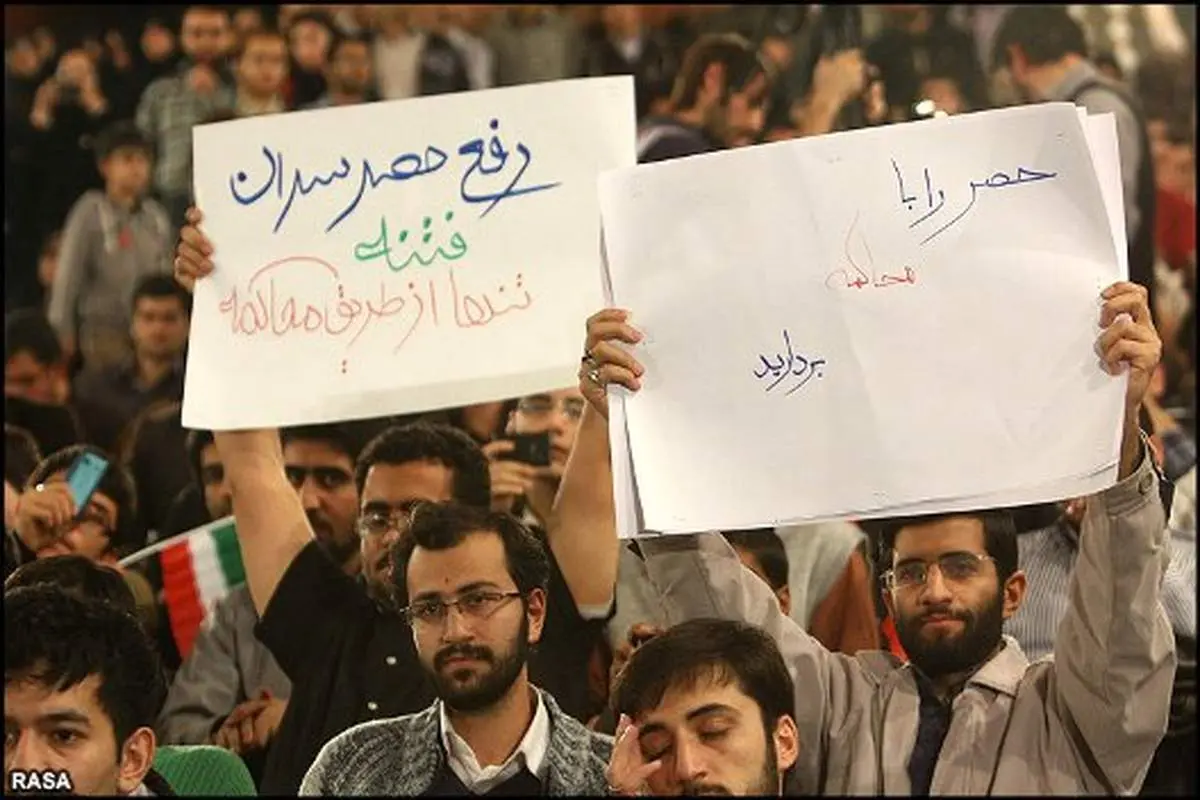 رفع حصر سران
فتنه
تنها از طریق محاکمه
حصر را با
محاکمه
بردارید
RASA